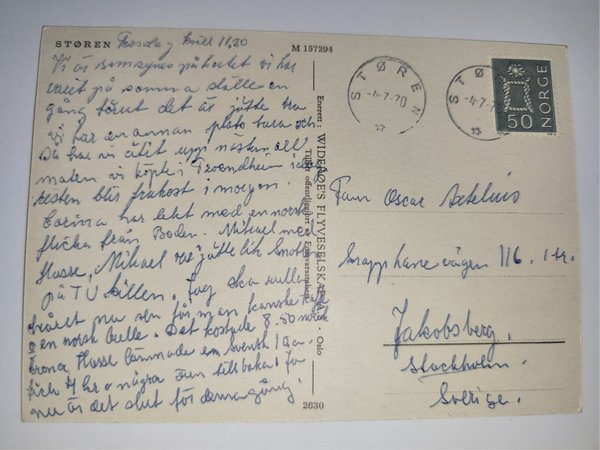 STØREN
Torsdag kväll 11.20
M 157294
Vi är på kortet vi har
varit på samma ställe en
gång förut det är jätte bra
vi har en annan plats bara och
Då har vi ätit upp nästan all
maten vi köpte i Trondheim
resten blir frukost i morgon.
Carina har lekt med en norsk
flicka från Boden. Mikael med
Hasse, Mikael var jätte lik
på TV killen. Jag ska
håret nu sen får man kanske
en norsk bulle. Det kostade 8.50 norsk
krona Hasse lämnade en svensk 10 a
fick 4 kr o några ören tillbaka. Ja
nu är det slut för denna gång.
Enerett: WIDERØE'S FLYVESELSKAP A/S - Oslo
2630
STØREN
-4.7.70
STØ
-4.7.7
50 NORGE
Fam Oscar
Snapphanevägen 116. 1 tr.
Jakobsberg.
Stockholm.
Sverige.